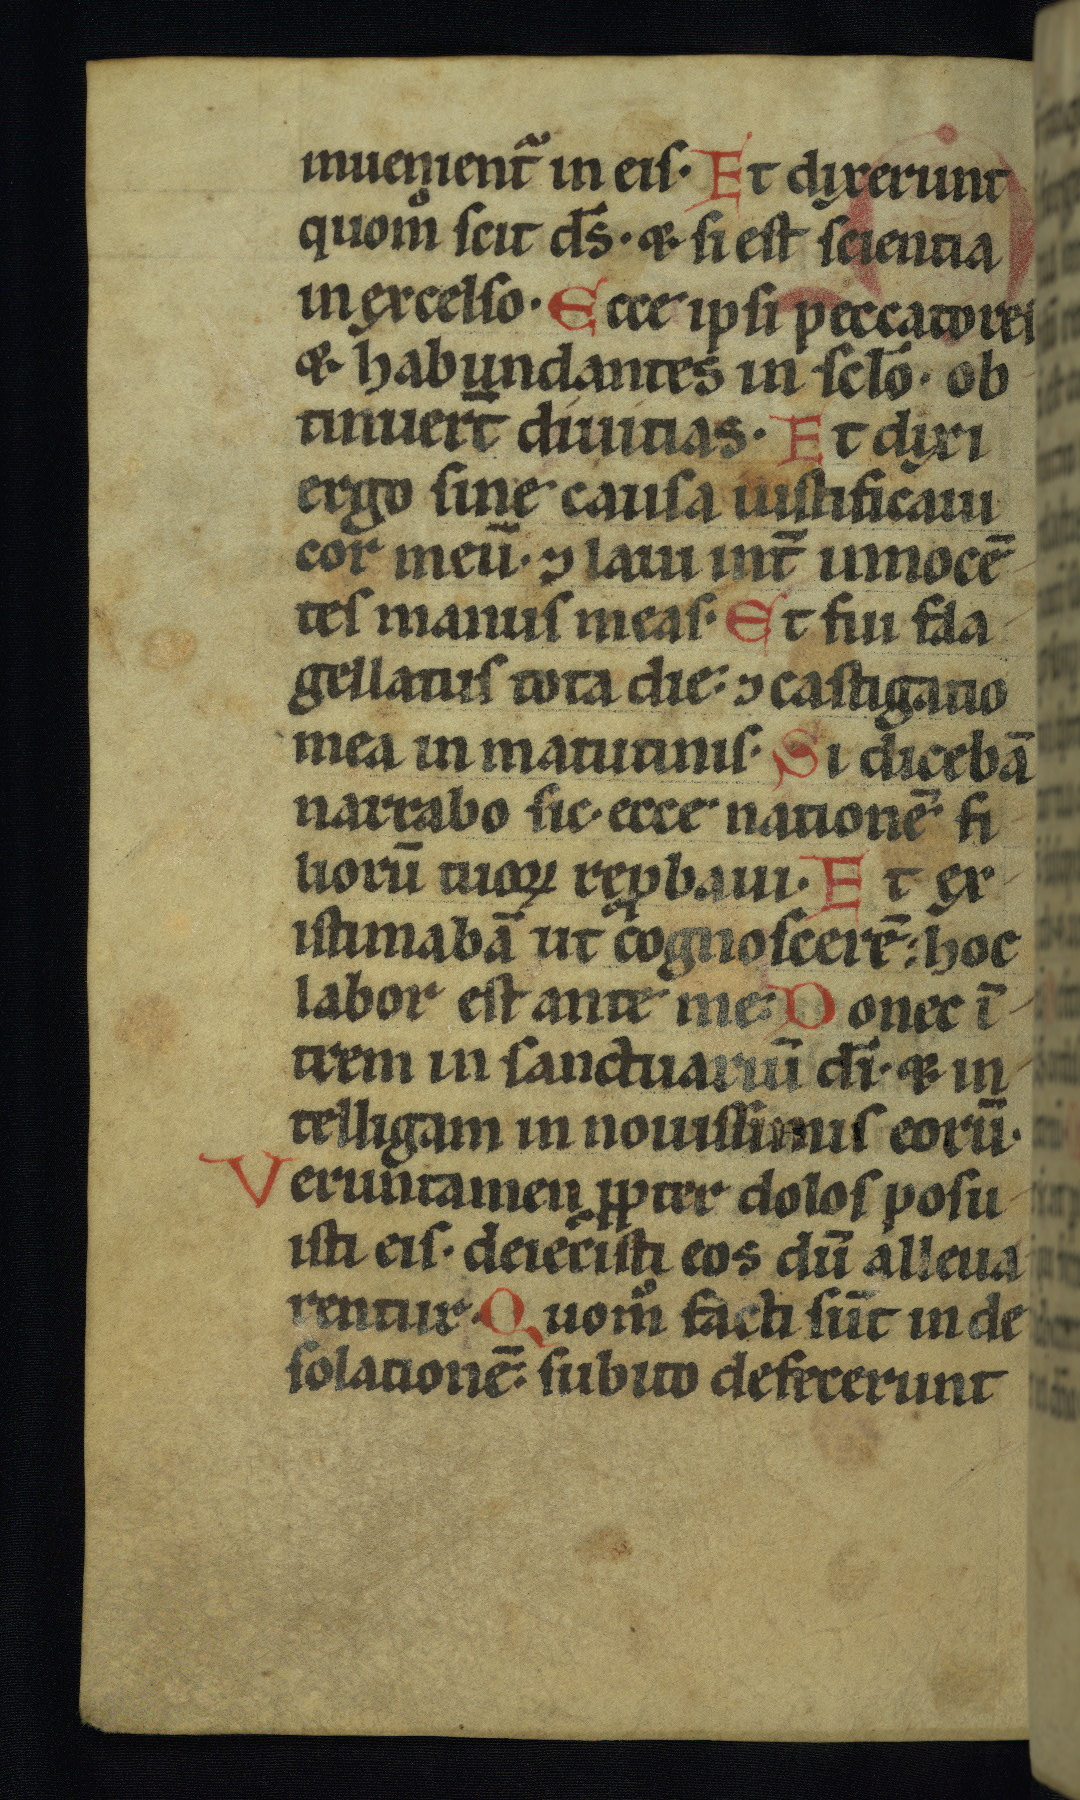 inuenient᷑ in eis· Et dixerunt
quom̊ scit ds̄· & si est scientia
in excelso· Ecce ipsi peccatores
& habundantes in sclō· ob
tinuert̄ diuitias· Et dixi
ergo sine causa iustificaui
cor meū· ⁊ laui int̄ innocē
tes manus meas· Et fui fla
gellatus tota die: ⁊ castigatio
mea in matutinis· Si dicebā
narrabo sic· ecce nationē fi
liorū tuoꝝ reꝓbaui· Et ex
istimabā ut cognoscerē: hoc
labor est ante me: Donec ī
trem in sanctuariū dī· & in
telligam in nouissimis eorū·
Verūtamen ꝓpter dolos posu
isti eis· deiecisti eos dū alleua
rentur· Quom̊ facti sūt in de
solationē: subito defecerunt